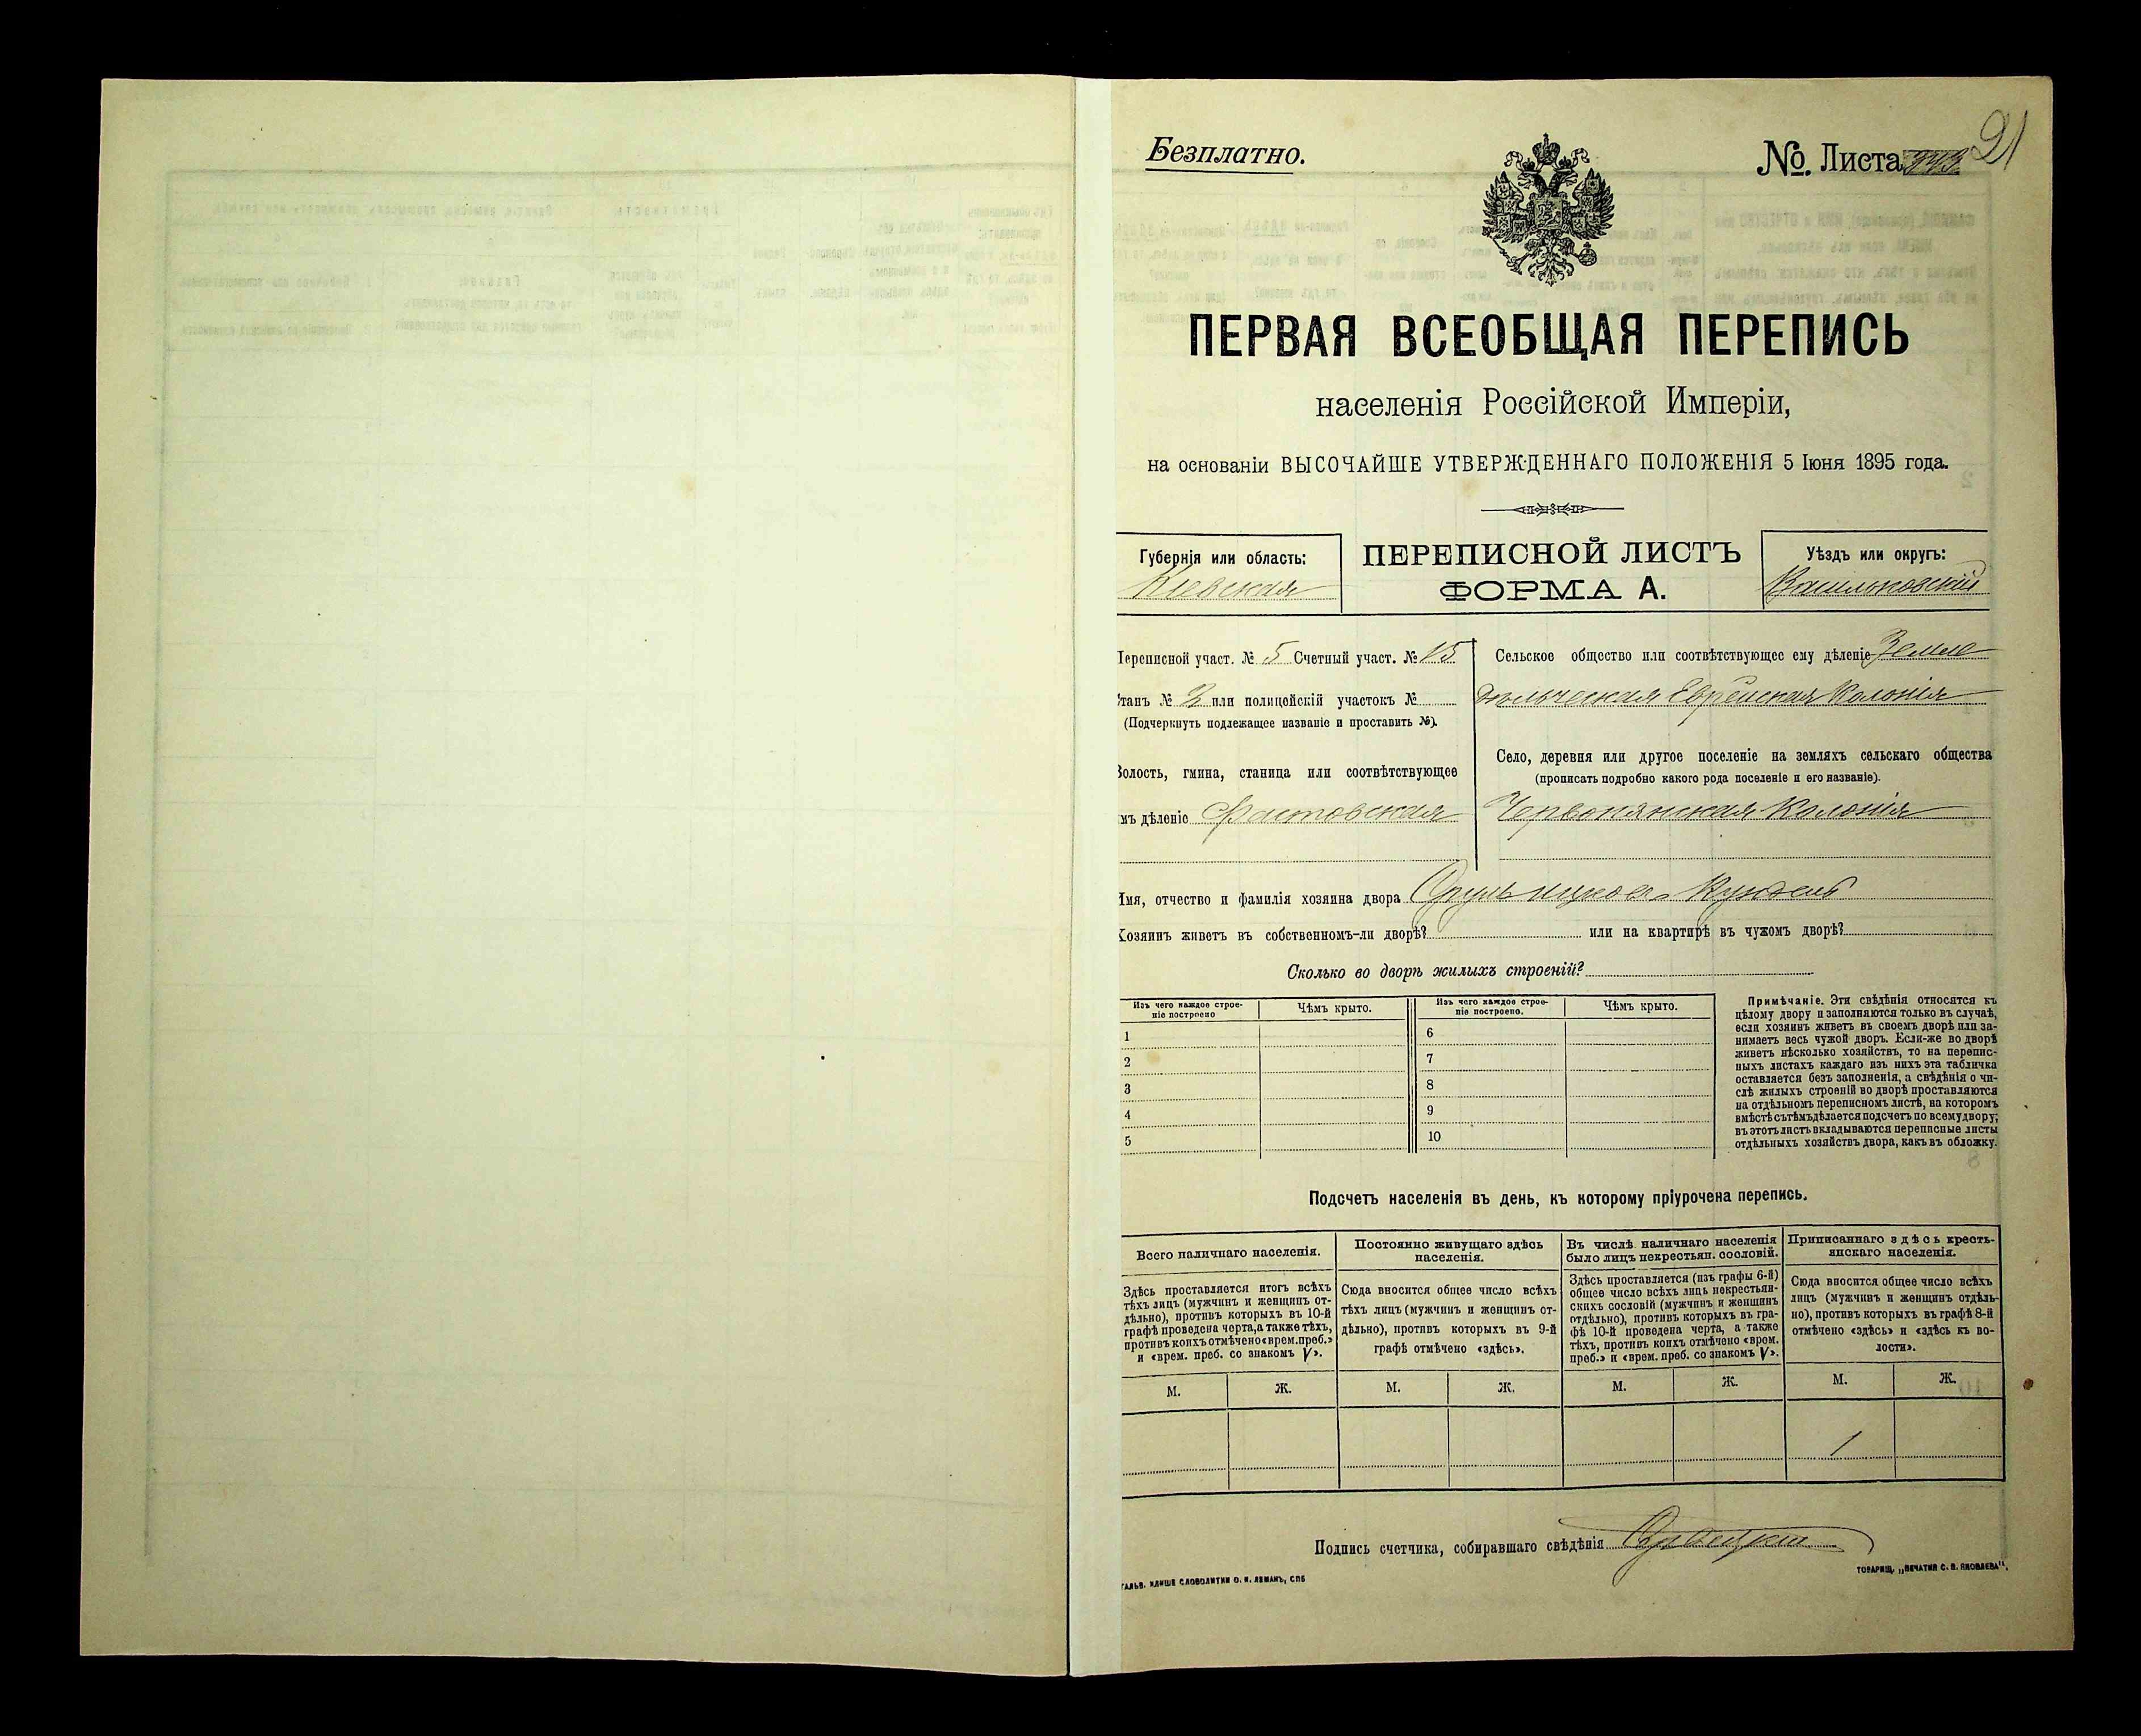 Безплатно.
№. Листа
21
ПЕРВАЯ ВСЕОБЩАЯ ПЕРЕПИСЬ
населенія Россійской Имперіи,
на основаніи ВЫСОЧАЙШЕ УТВЕРЖДЕННАГО ПОЛОЖЕНІЯ 5 Іюня 1895 года.
Губернія или область:
Кіевская
ПЕРЕПИСНОЙ ЛИСТЪ
ФОРМА А.
Уѣздъ или округъ:
Васильковскій
Переписной участ. № 5 Счетный участ. № 15
Станъ № 3 или полицейскій участокъ №
(Подчеркнуть подлежащее названіе и проставить №).
Волость, гмина, станица или соотвѣтствующее
имъ дѣленіе Фастовская
Сельское общество или соотвѣтствующее ему дѣленіе Земле
дѣльческая Еврейская Колонія
Село, деревня или другое поселеніе на земляхъ сельскаго общества
(прописать подробно какого рода поселеніе и его названіе).
Червонянская Колонія
Имя, отчество и фамилія хозяина двора
Хозяинъ живетъ въ собственномъ-ли дворѣ? или на квартирѣ въ чужомъ дворѣ?
Сколько во дворѣ жилыхъ строеній?
Изъ чего каждое строе-
ніе построено
Чѣмъ крыто.
Изъ чего каждое строе-
ніе построено.
Чѣмъ крыто.
1
2
3
4
5
6
7
8
9
10
Примѣчаніе. Эти свѣдѣнія относятся къ
цѣлому двору и заполняются только въ случаѣ,
если хозяинъ живетъ въ своемъ дворѣ или за-
нимаетъ весь чужой дворъ. Если-же во дворѣ
живетъ нѣсколько хозяйствъ, то на перепис-
ныхъ листахъ каждаго изъ нихъ эта табличка
оставляется безъ заполненія, а свѣдѣнія о чи-
слѣ жилыхъ строеній во дворѣ проставляются
на отдѣльномъ переписномъ листѣ, на которомъ
вмѣстѣ съ тѣмъ дѣлается подсчетъ по всему двору;
въ этотъ листъ вкладываются переписные листы
отдѣльныхъ хозяйствъ двора, какъ въ обложку.
Подсчетъ населенія въ день, къ которому пріурочена перепись.
Всего наличнаго населенія.
Здѣсь проставляется итогъ всѣхъ
тѣхъ лицъ (мужчинъ и женщинъ от-
дѣльно), противъ которыхъ въ 10-й
графѣ проведена черта, а также тѣхъ,
противъ коихъ отмѣчено «врем. преб.»
и «врем. преб. со знакомъ V».
Постоянно живущаго здѣсь
населенія.
Сюда вносится общее число всѣхъ
тѣхъ лицъ (мужчинъ и женщинъ от-
дѣльно), противъ которыхъ въ 9-й
графѣ отмѣчено «здѣсь».
Въ числѣ наличнаго населенія
было лицъ некрестьян. сословій.
Здѣсь проставляется (изъ графы 6-й)
общее число всѣхъ лицъ некрестьян-
скихъ сословій (мужчинъ и женщинъ
отдѣльно), противъ которыхъ въ гра-
фѣ 10-й проведена черта, а также
тѣхъ, противъ коихъ отмѣчено «врем.
преб.» и «врем. преб. со знакомъ V».
Приписаннаго здѣсь кресть-
янскаго населенія.
Сюда вносится общее число всѣхъ
лицъ (мужчинъ и женщинъ отдѣль-
но), противъ которыхъ въ графѣ 8-й
отмѣчено «здѣсь» и «здѣсь къ во-
лости».
М. Ж. М. Ж. М. Ж. М. Ж.
1
Подпись счетчика, собиравшаго свѣдѣнія
ГАЛЬВ. КЛИШЕ СЛОВОЛИТНИ О. И. ЛЕМАНЪ, СПБ
ТОВАРИЩ. „ПЕЧАТНЯ С. П. ЯКОВЛЕВА“.